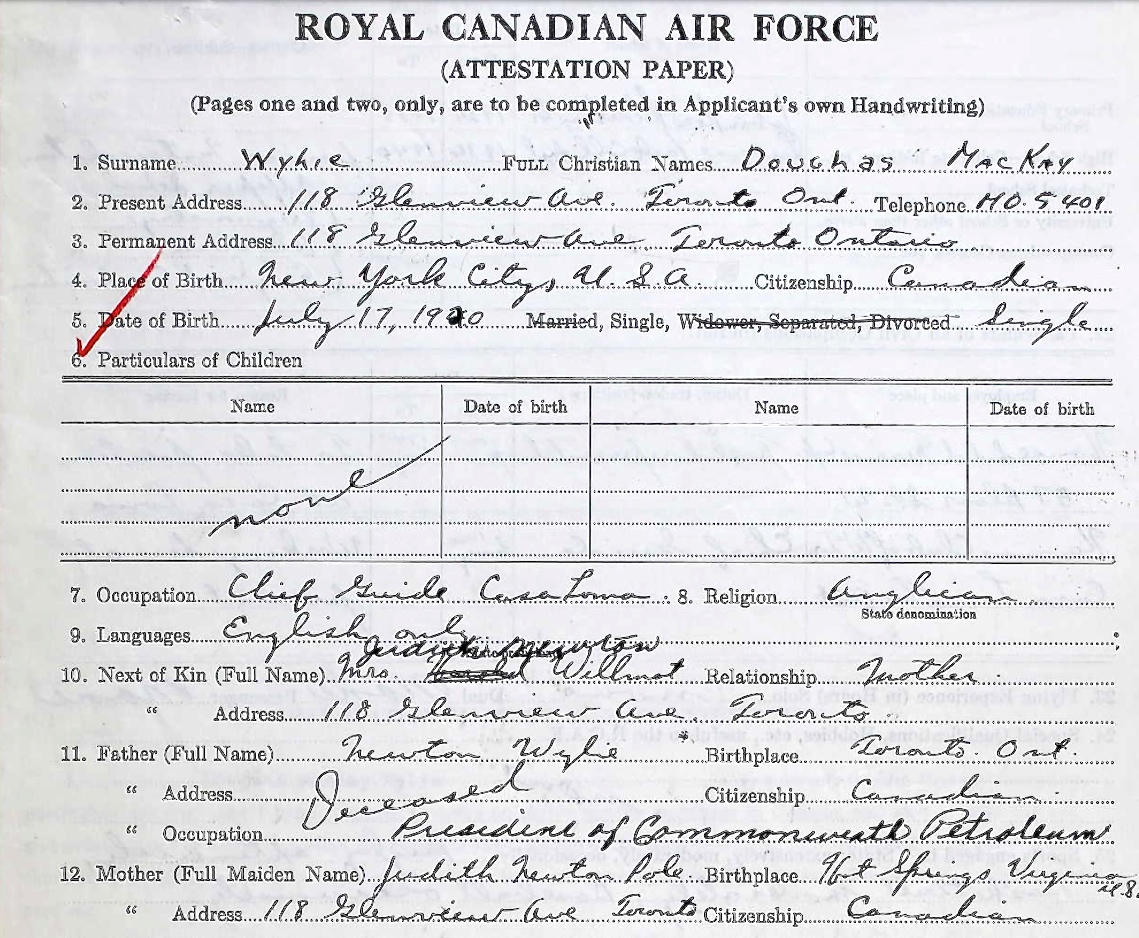 ROYAL CANADIAN AIR FORCE
(ATTESTATION PAPER)
(Pages one and two, only, are to be completed in Applicant's own Handwriting)
1. Surname Wylie FULL Christian Names Douglas MacKay
2. Present Address 118 Glenview Ave. Toronto Ont. Telephone MO. 5401
3. Permanent Address 118 Glenview Ave Toronto Ontario
4. Place of Birth New York City, U.S.A. Citizenship Canadian
5. Date of Birth July 17, 1920 Married, Single, Widower, Separated, Divorced Single
6. Particulars of Children
Name Date of birth Name Date of birth
none
7. Occupation Chief Guide Casa Loma 8. Religion Anglican
State denomination
9. Languages English only
Judith Newton
10. Next of Kin (Full Name) Mrs. Willmot Relationship Mother
" Address 118 Glenview Ave. Toronto
11. Father (Full Name) Newton Wylie Birthplace Toronto Ont.
" Address Deceased Citizenship Canadian
" Occupation President of Commonweath Petroleum
12. Mother (Full Maiden Name) Judith Newton Pole Birthplace Hot Springs Virginia
" Address 118 Glenview Ave Toronto Citizenship Canadian